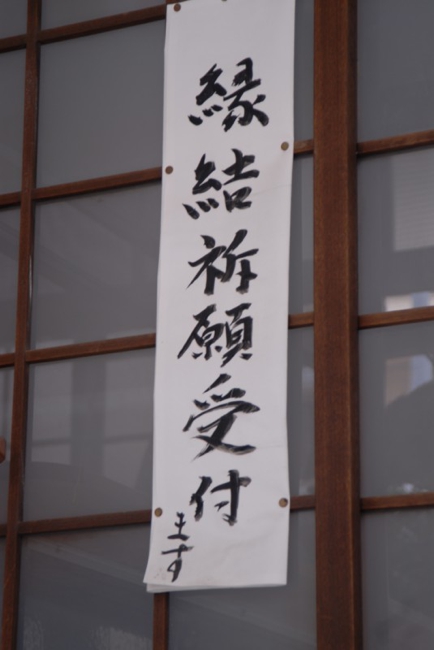 縁結祈願受付ます